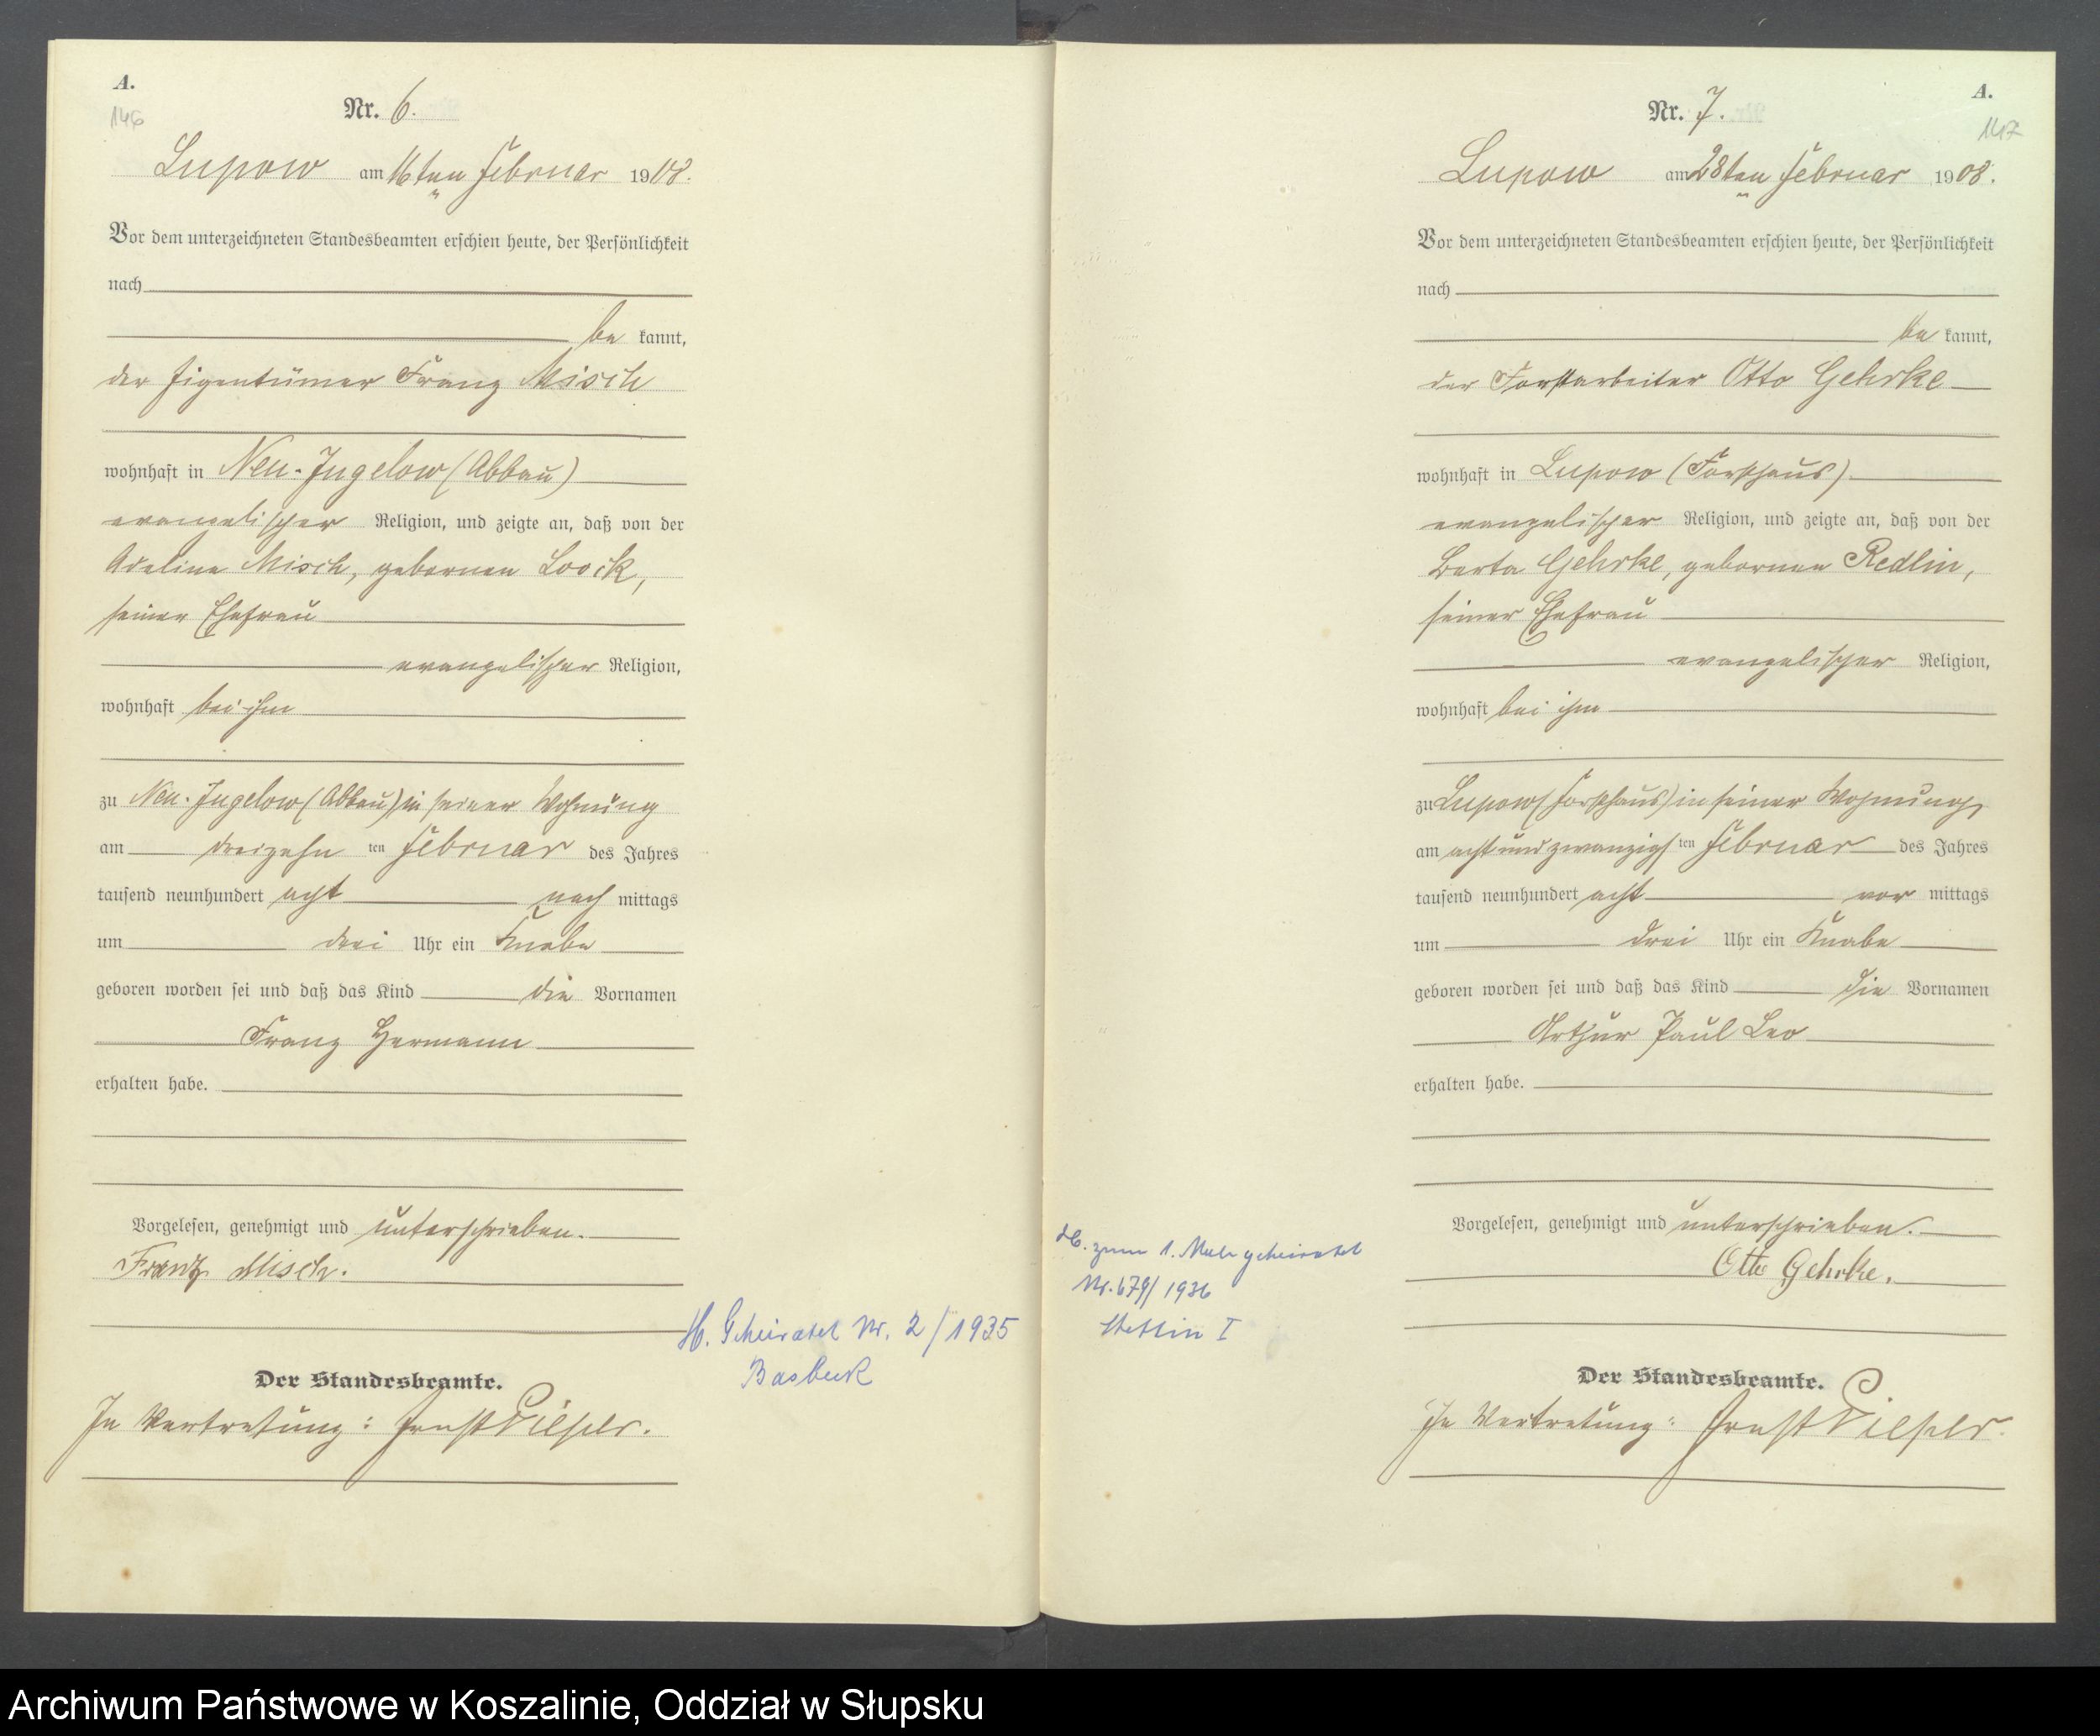 A.
146
Nr. 6.
Lupow am 16ten Februar 1908.
Vor dem unterzeichneten Standesbeamten erschien heute, der Persönlichkeit
nach
be kannt,
der Eigentümer Franz Misch
wohnhaft in Neu-Jugelow (Abbau)
evangelischer Religion, und zeigte an, daß von der
Adeline Misch, gebornen Loock,
seiner Ehefrau
evangelischer Religion,
wohnhaft bei ihm
zu Neu-Jugelow (Abbau) in seiner Wohnung
am dreizehn ten Februar des Jahres
tausend neunhundert acht nach mittags
um drei Uhr ein Knabe
geboren worden sei und daß das Kind die Vornamen
Franz Hermann
erhalten habe.
Vorgelesen, genehmigt und unterschrieben.
Franz Misch.
H. Geheiratet Nr. 2/1935
Basbeck
Der Standesbeamte.
In Vertretung: Ernst Pieper.
A.
147
Nr. 7.
Lupow am 28ten Februar 1908.
Vor dem unterzeichneten Standesbeamten erschien heute, der Persönlichkeit
nach
be kannt,
der Forstarbeiter Otto Gehrke
wohnhaft in Lupow (Forsthaus)
evangelischer Religion, und zeigte an, daß von der
Berta Gehrke, gebornen Redlin,
seiner Ehefrau
evangelischer Religion,
wohnhaft bei ihm
zu Lupow (Forsthaus) in seiner Wohnung
am achtundzwanzigs ten Februar des Jahres
tausend neunhundert acht vor mittags
um drei Uhr ein Knabe
geboren worden sei und daß das Kind die Vornamen
Arthur Paul Leo
erhalten habe.
Vorgelesen, genehmigt und unterschrieben.
Otto Gehrke.
H. zum 1. Male geheiratet
Nr. 679/1936
Stettin I
Der Standesbeamte.
In Vertretung: Ernst Pieper.
Archiwum Państwowe w Koszalinie, Oddział w Słupsku